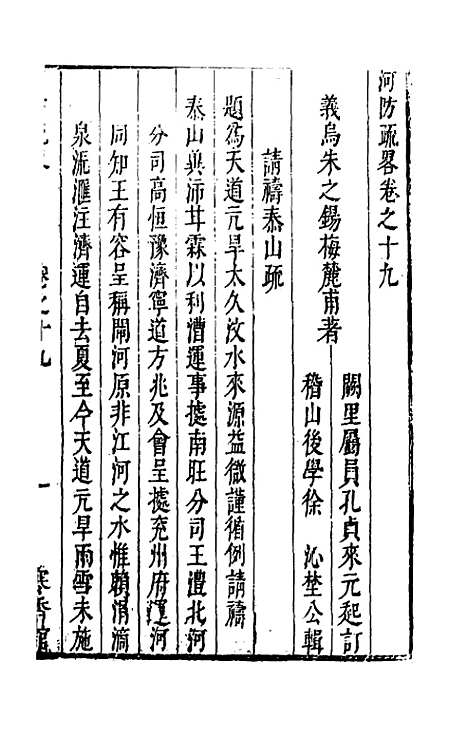 河防疏畧卷之十九
闕里屬員孔貞來元起訂
義烏朱之錫梅麓甫著
稽山後學徐　沁埜公輯
請禱泰山疏
題為天道亢旱太久汶水來源益微謹循例請禱
泰山興沛甘霖以利漕運事據南旺分司王澧北河
分司高恒豫濟寧道方兆及會呈據兖州府運河
同知王有容呈稱閘河原非江河之水惟賴涓滴
泉流滙注濟運自去夏至今天道亢旱雨雪未施
卷之十九
一
寒香館